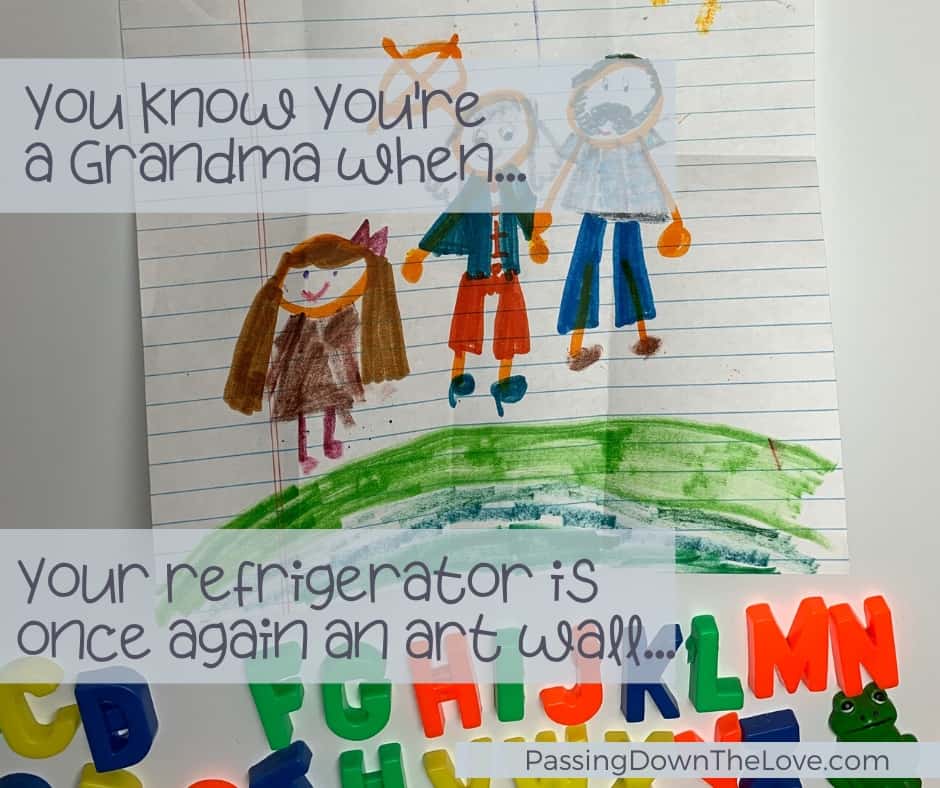 You know you're
a Grandma when...
Your refrigerator is
once again an art wall...
C D F G H I J K L M N
PassingDownTheLove.com